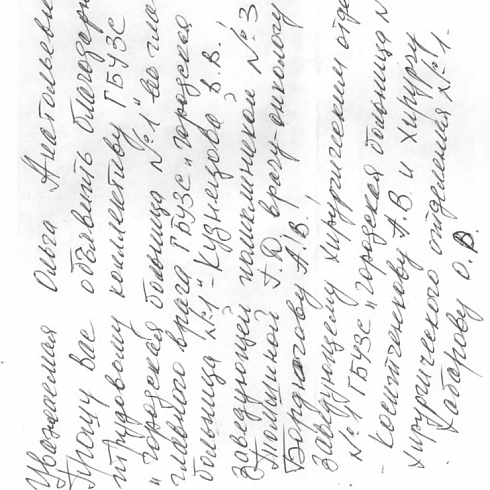 Уважаемая Ольга Анатольевн
Прошу вас объявить благодарн
трудовому коллективу ГБУЗС
"городская больница №1" во гла
главного врача ГБУЗС "городская
больница №1" - Кузнецова В.В.
заведующей поликлиникой №3
Г.Д врачу-онкологу
А.В.!
заведующему хирургическим отде
№1 ГБУЗС "городская больница №
А.В. и хирургу
хирургического отделения №1.
Хабарову О.В.